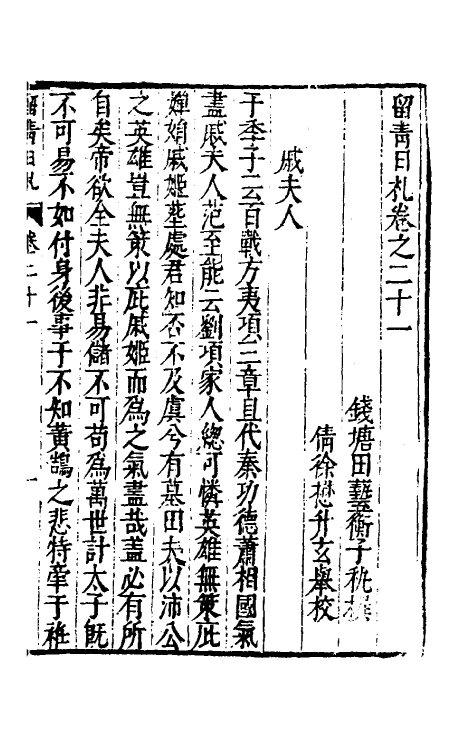 留青日札卷之二十一
錢塘田藝衡子秇撰
倩徐懋升玄舉校
戚夫人
于季子云百戰方夷項三章且代秦功德蕭相國氣
盡戚夫人范至能云劉項家人總可憐英雄無策庇
嬋娟戚姬塟處君知否不及虞兮有墓田夫以沛公
之英雄豈無策以庇戚姬而為之氣盡哉蓋必有所
自矣帝欲全夫人非易儲不可苟為萬世計太子既
不可易不如付身後事于不知黃鵠之悲特牽于袵
留青日札 卷二十一 一